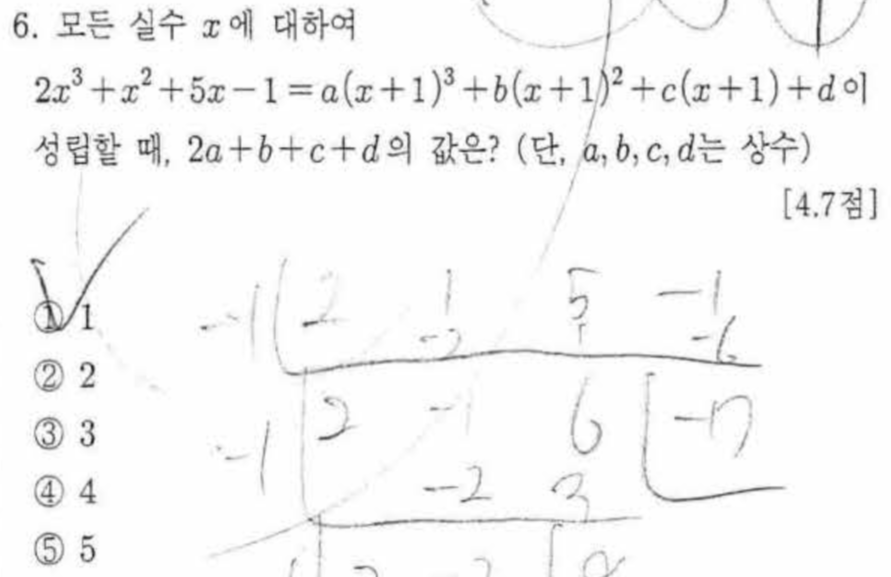 6. 모든 실수 x에 대하여
2x³+x²+5x-1=a(x+1)³+b(x+1)²+c(x+1)+d이
성립할 때, 2a+b+c+d의 값은? (단, a, b, c, d는 상수)
[4.7점]
① 1
② 2
③ 3
④ 4
⑤ 5
-1 2 1 5 -1
-2 1 -6
-1 2 -1 6 -7
-2 3